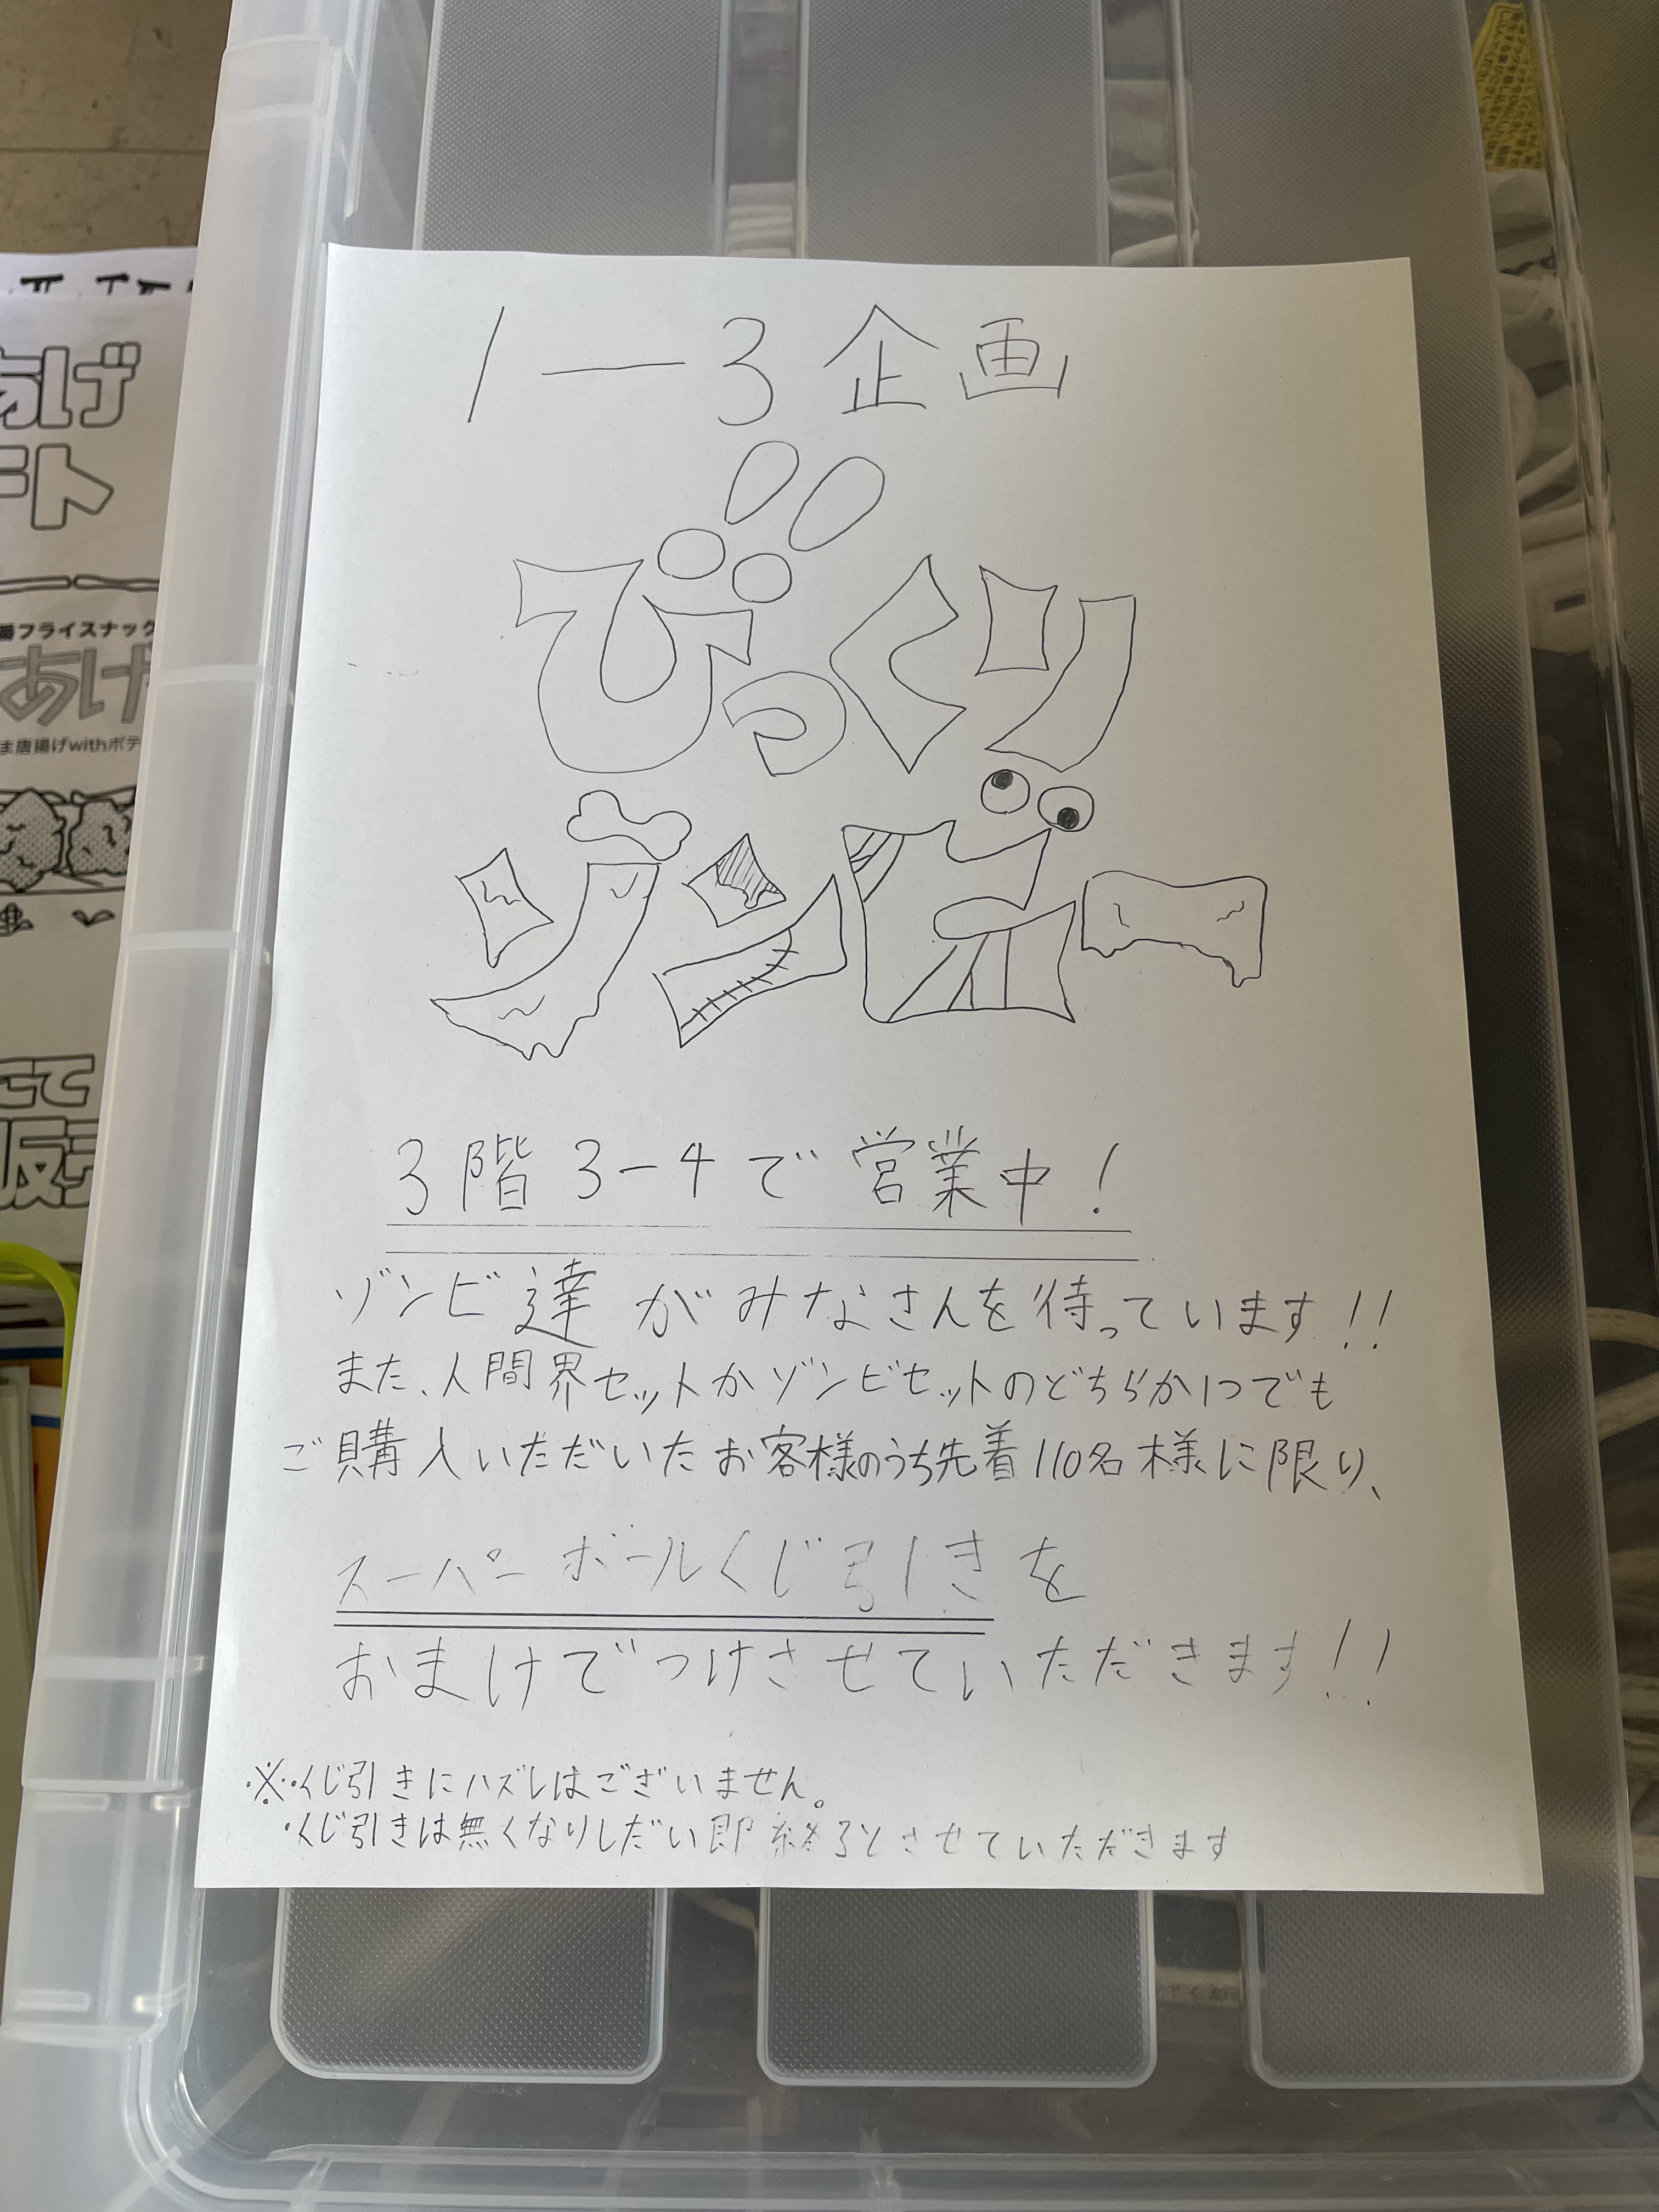 1―3 企画
びっくり
ゾンビー
3階 3-4で営業中!
ゾンビ達がみなさんを待っています!!
また、人間界セットかゾンビセットのどちらか1つでも
ご購入いただいたお客様のうち先着110名様に限り、
スーパーボールくじ引きを
おまけでつけさせていただきます!!
※・くじ引きにハズレはございません。
・くじ引きは無くなりしだい即終了とさせていただきます
あげ
ート
番フライスナック
あげ
ま唐揚げwithポテ
たて
販売